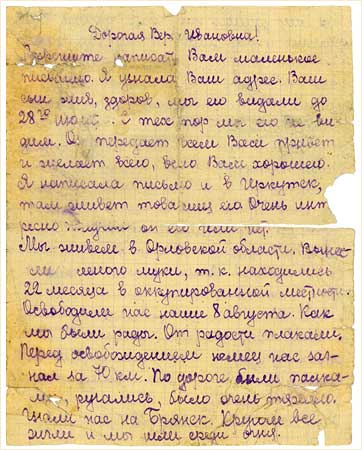 Дорогая Вера Ивановна!
Разрешите написать Вам маленькое
письмецо. Я узнала Ваш адрес. Ваш
сын жив, здоров, мы его видали до
28го июля. С тех пор мы его не ви-
дим. Он передает всем Вам привет
и желает всего, всего Вам хорошего.
Я написала письмо и в Иркутск,
там живет товарищ его. Очень инте
ресно получит он его или нет.
Мы живем в Орловской области. Вынес
ли много муки, т.к. находились
22 месяца в оккупированной местности.
Освободили нас наши 8 августа. Как
мы были рады. От радости плакали.
Перед освобождением немец нас заг-
нал за 70 км. По дороге были
, ругались, было очень тяжело.
Гнали нас на Брянск. Кругом все
жгли и мы шли среди огня.